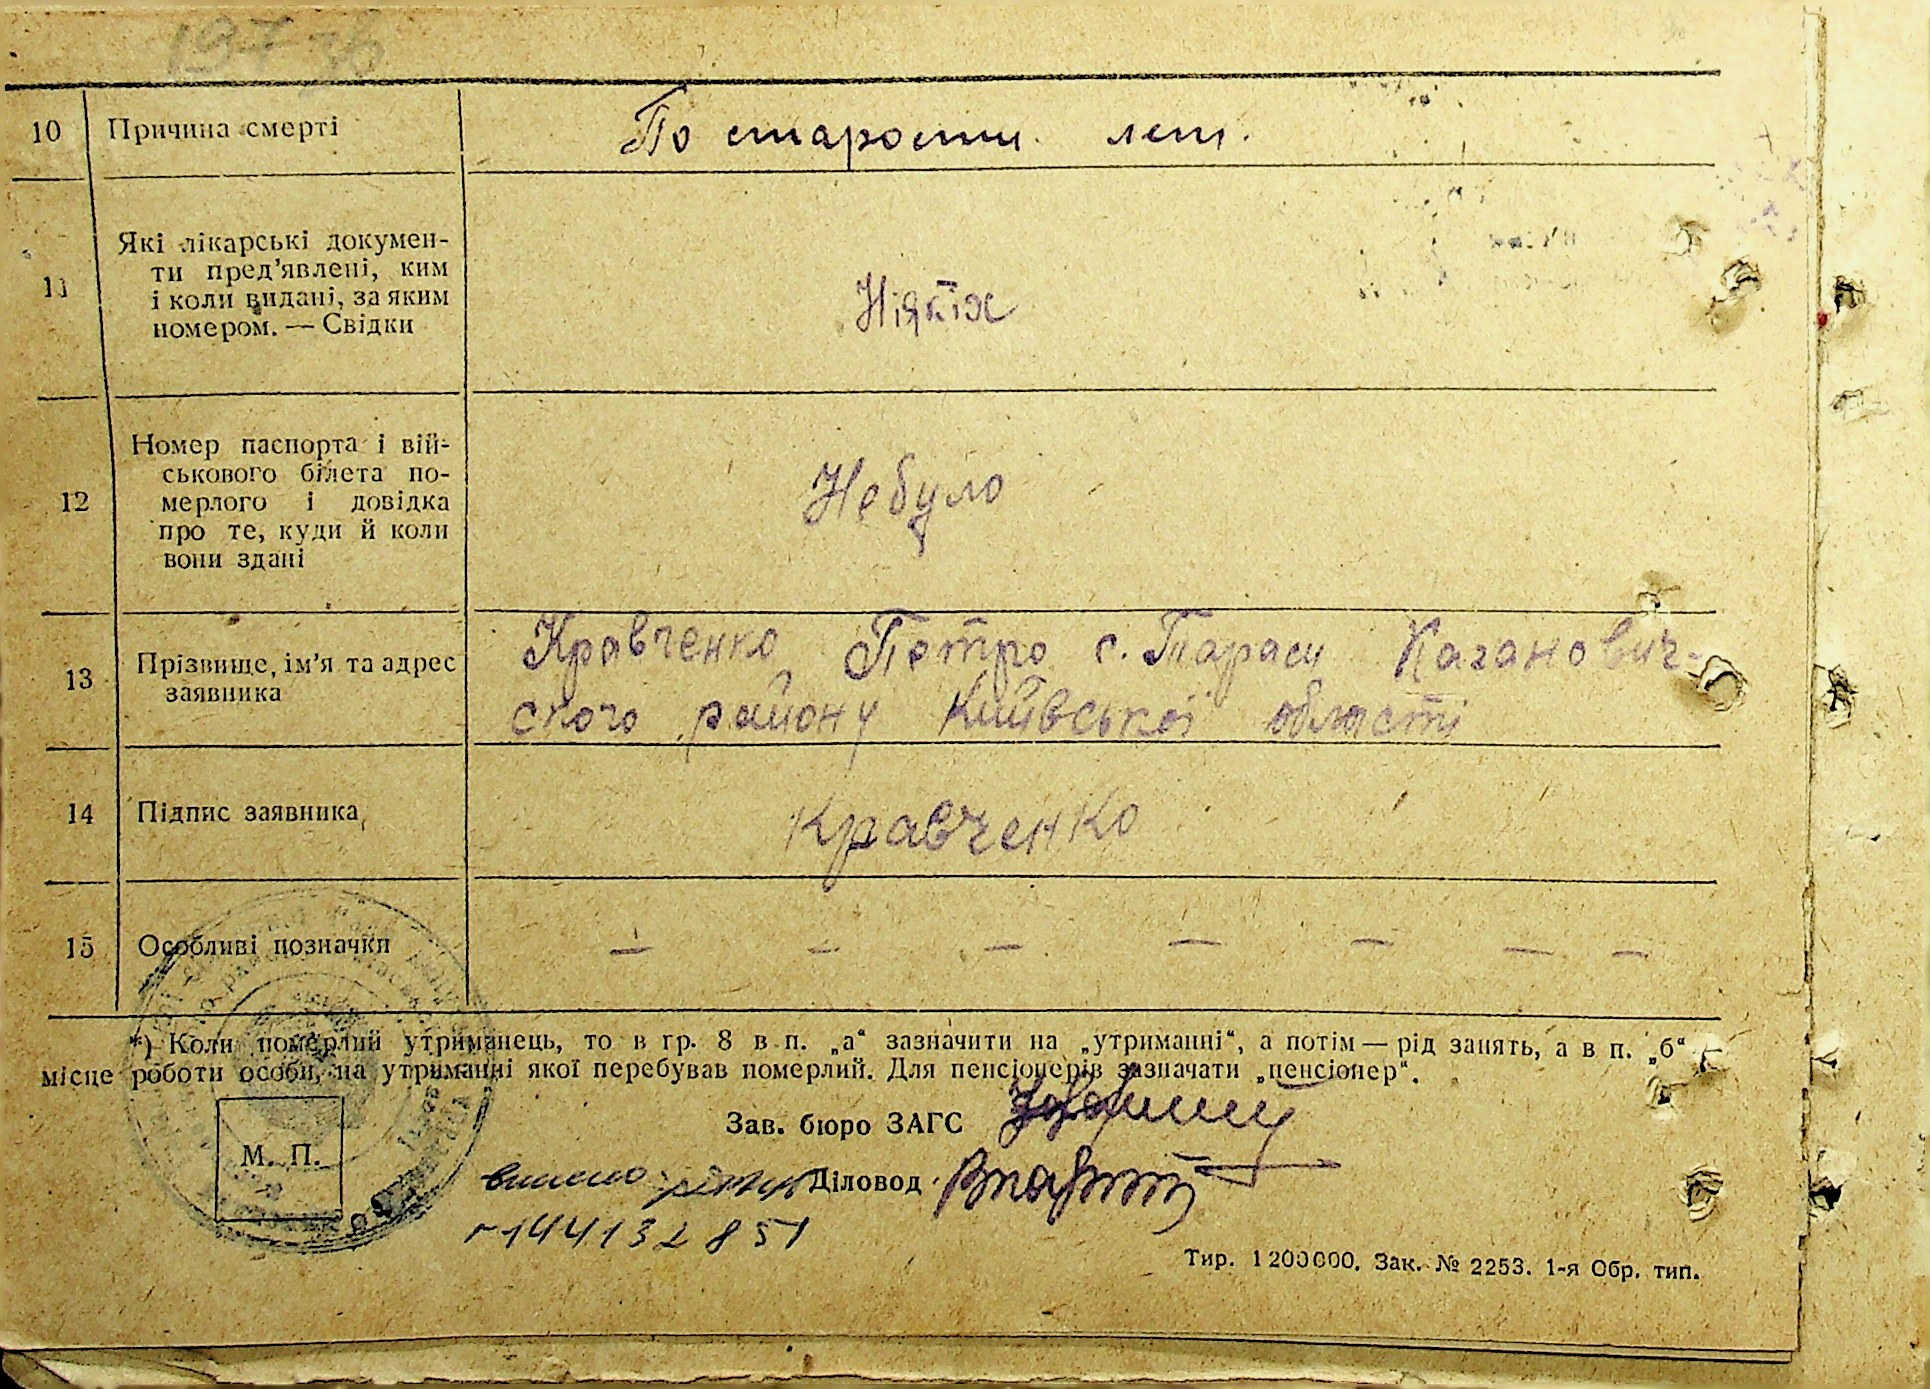 197 зв
10 Причина смерті По старости лет.
11 Які лікарські докумен-
ти пред’явлені, ким
і коли видані, за яким
номером. — Свідки
Ніякіх
12 Номер паспорта і вій-
ськового білета по-
мерлого і довідка
про те, куди й коли
вони здані
Небуло
13 Прізвище, ім’я та адрес
заявника
Кравченко Петро с. Тараси Каганович-
ского району Київської області
14 Підпис заявника Кравченко
15 Особливі позначки — — — — — — —
*) Коли померлий утриманець, то в гр. 8 в п. „а“ зазначити на „утриманні“, а потім — рід занять, а в п. „б“
місце роботи особи, на утриманні якої перебував померлий. Для пенсіонерів зазначати „пенсіонер“.
Зав. бюро ЗАГС
М. П.
Діловод
144132851
Тир. 1200000. Зак. № 2253. 1-я Обр. тип.